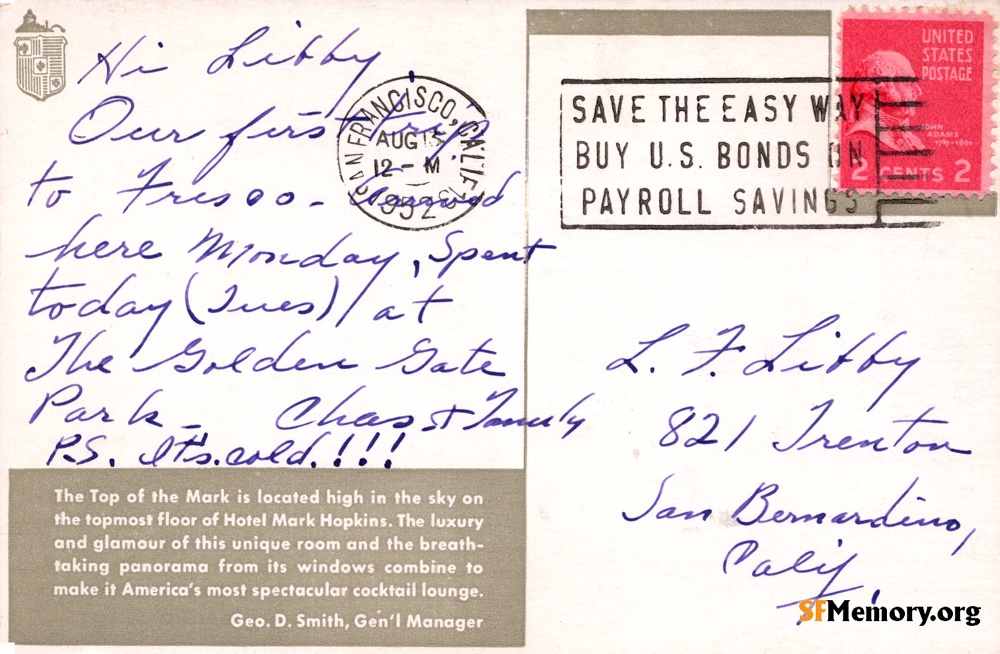 Hi Libby,
Our first trip
to Fresco - Arrived
here Monday, Spent
today (Tues) at
The Golden Gate
Park - Chas & Family
P.S. It's cold.!!!
The Top of the Mark is located high in the sky on
the topmost floor of Hotel Mark Hopkins. The luxury
and glamour of this unique room and the breath-
taking panorama from its windows combine to
make it America's most spectacular cocktail lounge.
Geo. D. Smith, Gen'l Manager
SAN FRANCISCO, CALIF.
AUG 13
12 - M
1952
SAVE THE EASY WAY
BUY U.S. BONDS ON
PAYROLL SAVINGS
UNITED
STATES
POSTAGE
JOHN
ADAMS
1797-1801
2 CENTS 2
L. F. Libby
821 Trenton
San Bernardino,
Calif.
SFMemory.org